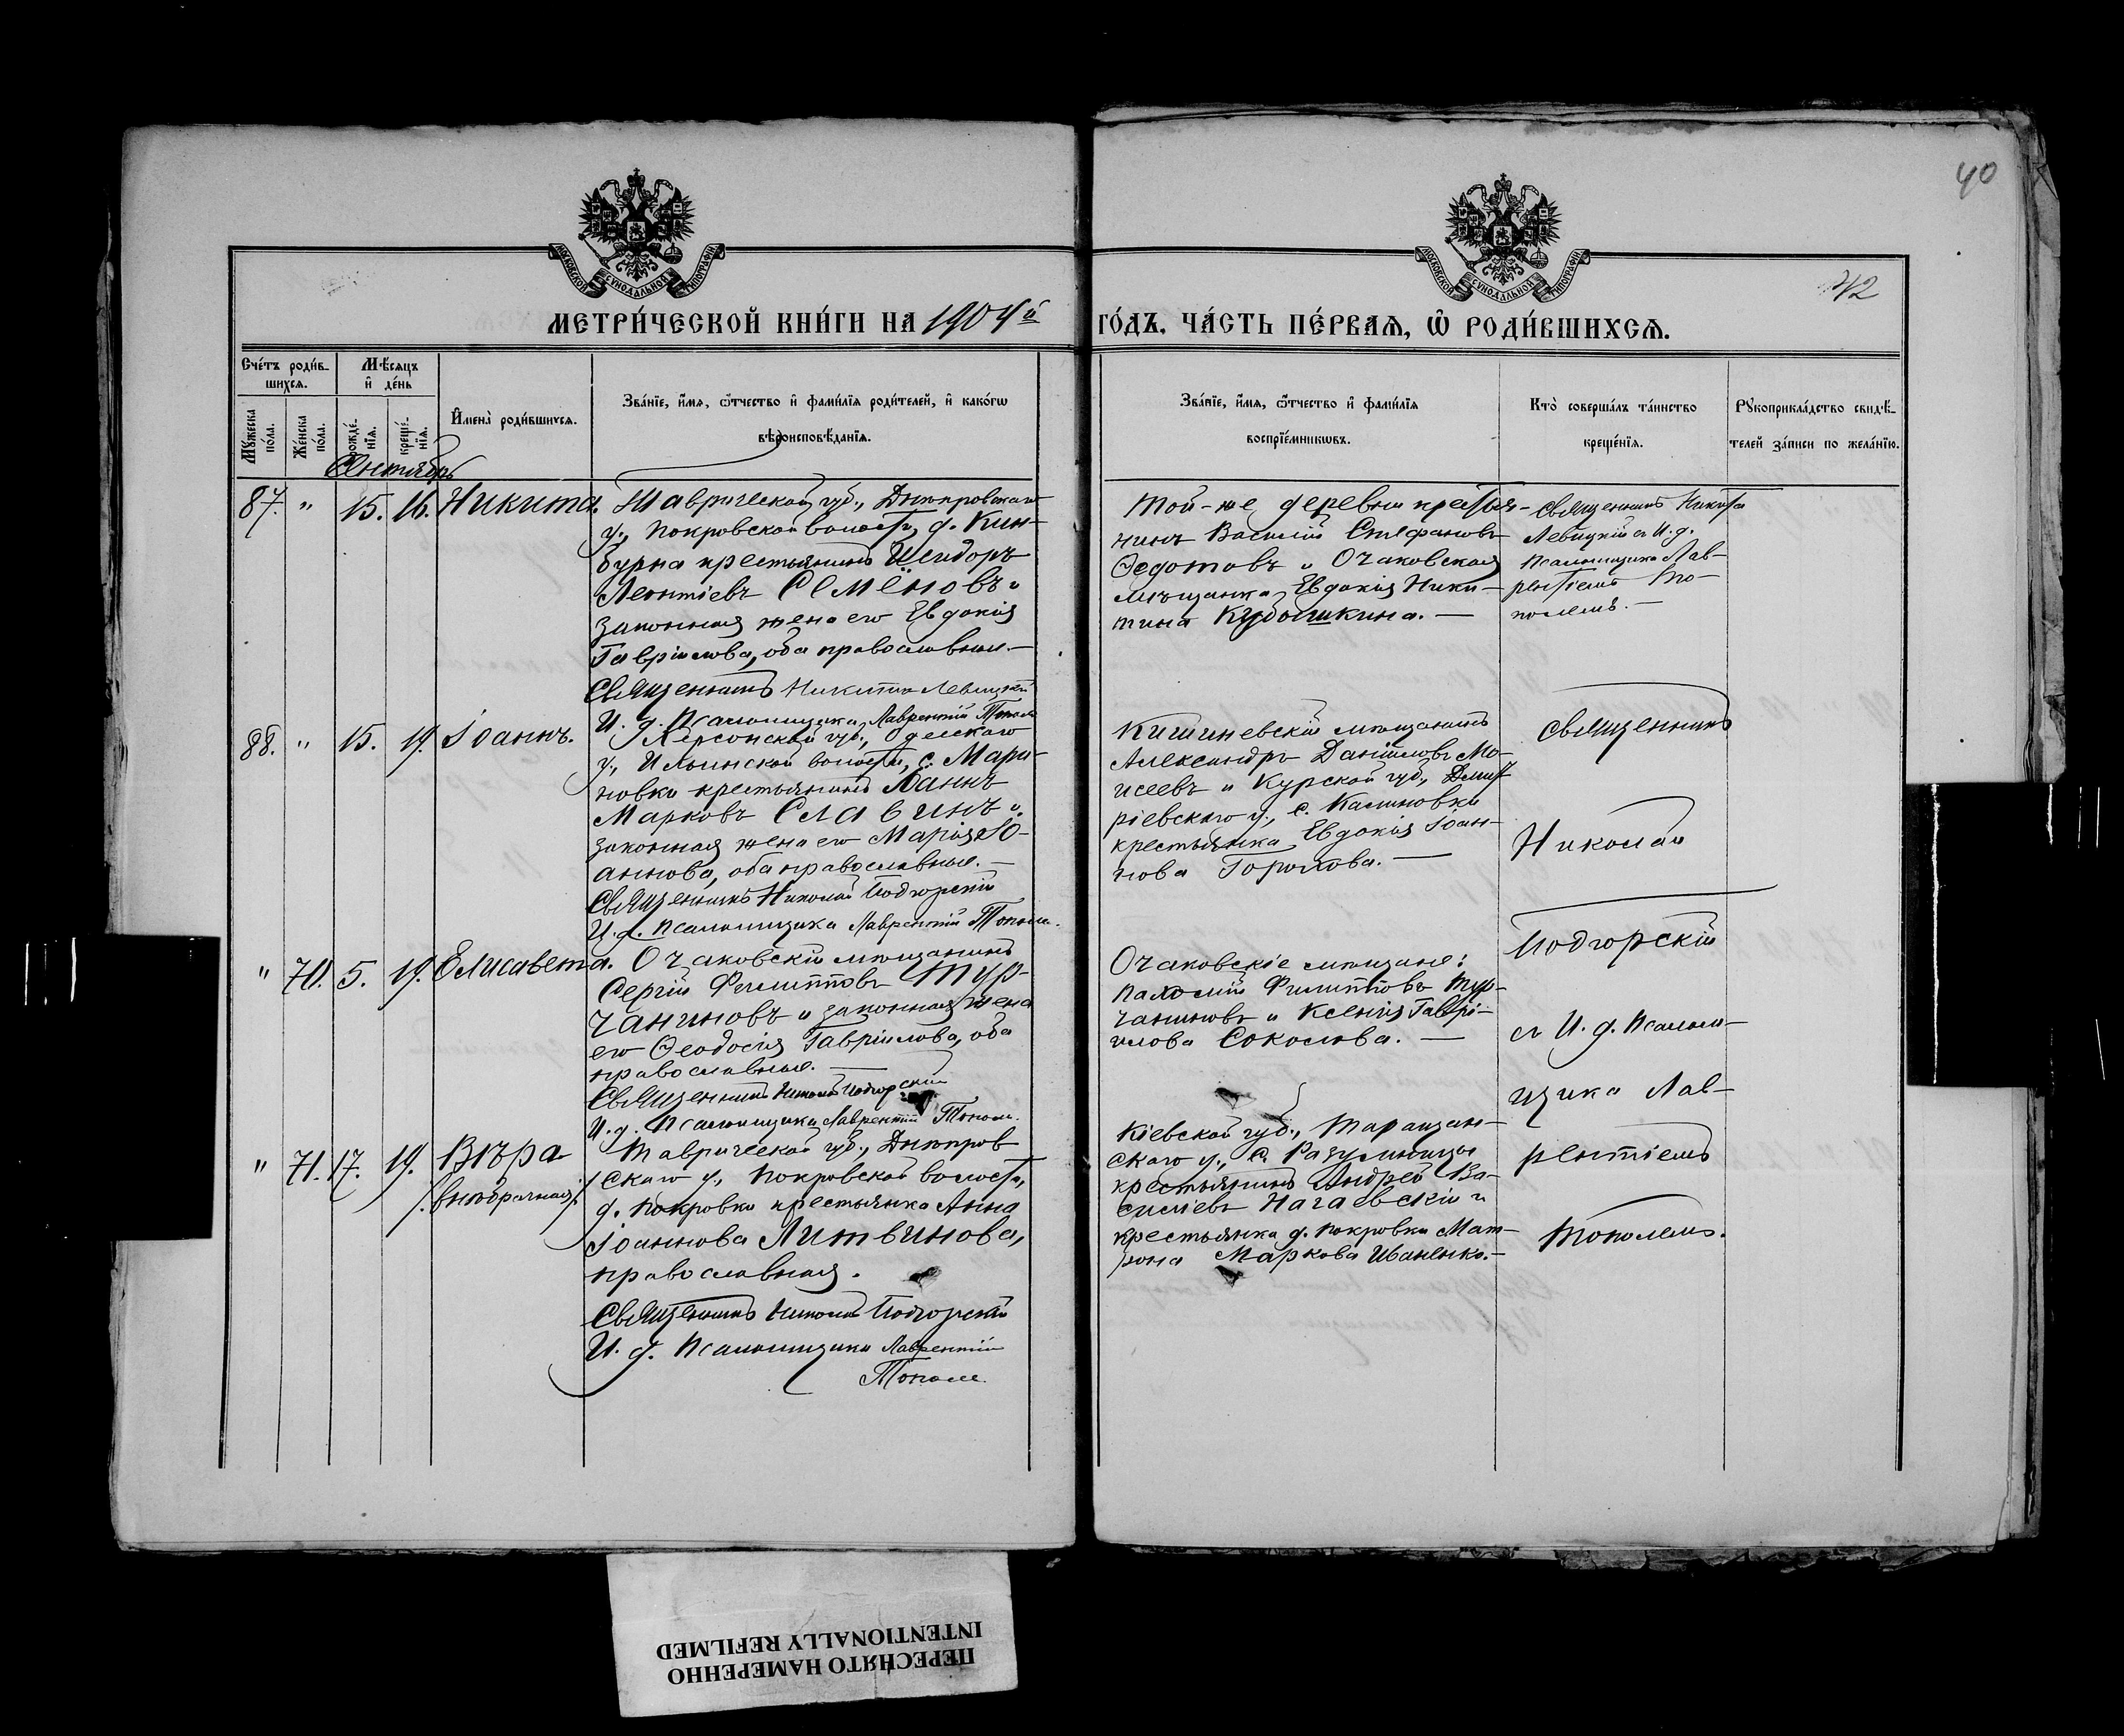 40
42
МОСКОВСКОЙ СѴНОДАЛЬНОЙ ТИПОГРАФІИ
МОСКОВСКОЙ СѴНОДАЛЬНОЙ ТИПОГРАФІИ
МЕТРИ́ЧЕСКОЙ КНИ́ГИ НА 1904й ГО́ДЪ, ЧА́СТЬ ПЕ́РВАЯ, Ѡ РОДИ́ВШИХСЯ.
Сче́тъ роди́в-
шихся.
Мѣ́сяцъ
и҆ де́нь
Мꙋ́жеска по́ла.
Же́нска по́ла.
рожде́нїя.
креще́нїя.
И҆мена̀ роди́вшихся.
Зва́нїе, и҆́мя, ѻ҆́тчество и҆ фами́лїя роди́телей, и҆ како́гѡ
вѣроисповѣ́данїя.
Зва́нїе, и҆́мя, ѻ҆́тчество и҆ фами́лїя
воспрїе́мникѡвъ.
Кто̀ соверша́лъ та́инство
креще́нїя.
Рꙋкоприкла́дство свидѣ́-
телей за́писи по жела́нїю.
Сентябрь
87. " 15. 16. Никита.
Таврической губ., Днѣпровскаго
у., Покровской волости, д. Кин-
бурна крестьянинъ Исидоръ
Леонтіевъ Семёновъ и
законная жена его Евдокія
Гавріилова, оба православные.—
Священникъ Никита Левицкій
И. д. Псаломщика Лаврентій Тополь
Той-же деревни крестья-
нинъ Василій Стефановъ
Ѳедотовъ и Очаковская
мѣщанка Евдокія Ники-
тина Кубышкина.—
Священникъ Никита
Левицкій съ И. д.
Псаломщика Лав-
рентіемъ То-
полемъ.—
88. " 15. 19. Іоаннъ.
Херсонской губ., Одесскаго
у., Ильинской волости, с. Мари-
новки крестьянинъ Іоаннъ
Марковъ Славинъ и
законная жена его Марія Іо-
аннова, оба православные.—
Священникъ Николай Подгорскій
И. д. Псаломщика Лаврентій Тополь.
Кишиневскій мѣщанинъ
Александръ Даніиловъ Мо-
исеевъ и Курской губ., Дмит
ріевскаго у., с. Калиновки
крестьянка Евдокія Іоан-
нова Горохова.—
Священникъ
Николай
Подгорскій
съ И. д. Псалом-
щика Лав-
рентіемъ
Тополемъ.
" 70. 5. 19. Елисавета.
Очаковскій мѣщанинъ
Сергій Филипповъ Тур-
чаниновъ и законная жена
его Ѳеодосія Гавріилова, оба
православные.—
Священникъ Николай Подгорскій
И. д. Псаломщика Лаврентій Тополь.
Очаковскіе мѣщане:
Пахомій Филипповъ Тур-
чаниновъ и Ксенія Гаврі-
илова Соколова.—
" 71. 17. 19. Вѣра
/внѣбрачная/.
Таврической губ., Днѣпров
скаго у., Покровской волости,
д. Покровки крестьянка Анна
Іоаннова Литвинова,
православная.
Священникъ Николай Подгорскій
И. д. Псаломщика Лаврентій
Тополь
Кіевской губ., Таращан-
скаго у., с.
крестьянинъ Андрей Ва-
силіевъ Нагаевскій и
крестьянка д. Покровки Мат-
рона Маркова Иваненко.—
ПЕРЕСНЯТО НАМЕРЕННО
INTENTIONALLY REFILMED